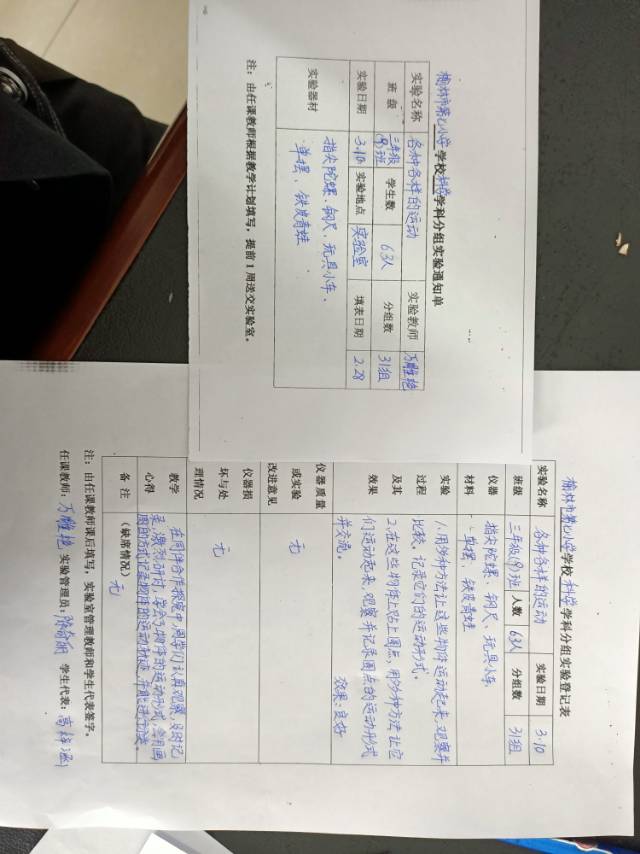 榆林市第九小学 学校 科学 学科分组实验通知单
实验名称 各种各样的运动 实验教师 万雕艳
班 级 三年级(9)班 学生数 63人 分组数 31组
实验日期 3.10 实验地点 实验室 填表日期 2.28
实验器材 指尖陀螺、钢尺、玩具小车、
单摆、铁皮青蛙
注：由任课教师根据教学计划填写，提前1周送交实验室。
榆林市第九小学 学校 科学 学科分组实验登记表
实验名称 各种各样的运动 实验日期 3.10
班级 三年级(9)班 人数 63人 分组数 31组
仪器 指尖陀螺、钢尺、玩具小车
材料 、单摆、铁皮青蛙
实验 1.用多种方法让这些物体运动起来,观察并
过程 比较,记录它们的运动形式。
及其 2.在这些物体上贴上圆点,用多种方法让它
效果 们运动起来,观察并记录圆点的运动形式
并交流。 效果：良好
仪器质量
或实验 无
改进意见
仪器损
坏与处 无
理情况
教学 在同伴合作探究中,同学们认真观察,及时记
心得 录,激烈研讨,学会了物体的运动形式,会用画
图的方式记录物体的运动轨迹,并能进行
备 注 (缺席情况) 无
注：由任课教师课后填写，实验室管理教师和学生代表签字。
任课教师：万雕艳 实验管理员： 学生代表：高